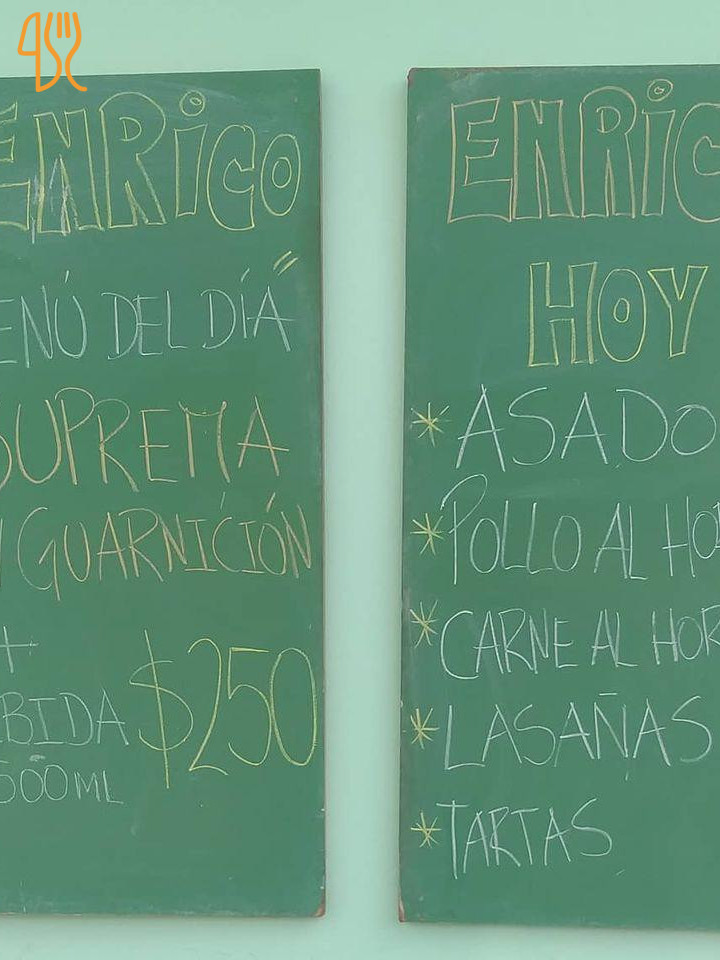 ENRICO
ENÚ DEL DÍA"
SUPREMA
GUARNICIÓN
+
BIDA $250
500ML
ENRIC
HOY
* ASADO
* POLLO AL HO
* CARNE AL HOR
* LASAÑAS
* TARTAS